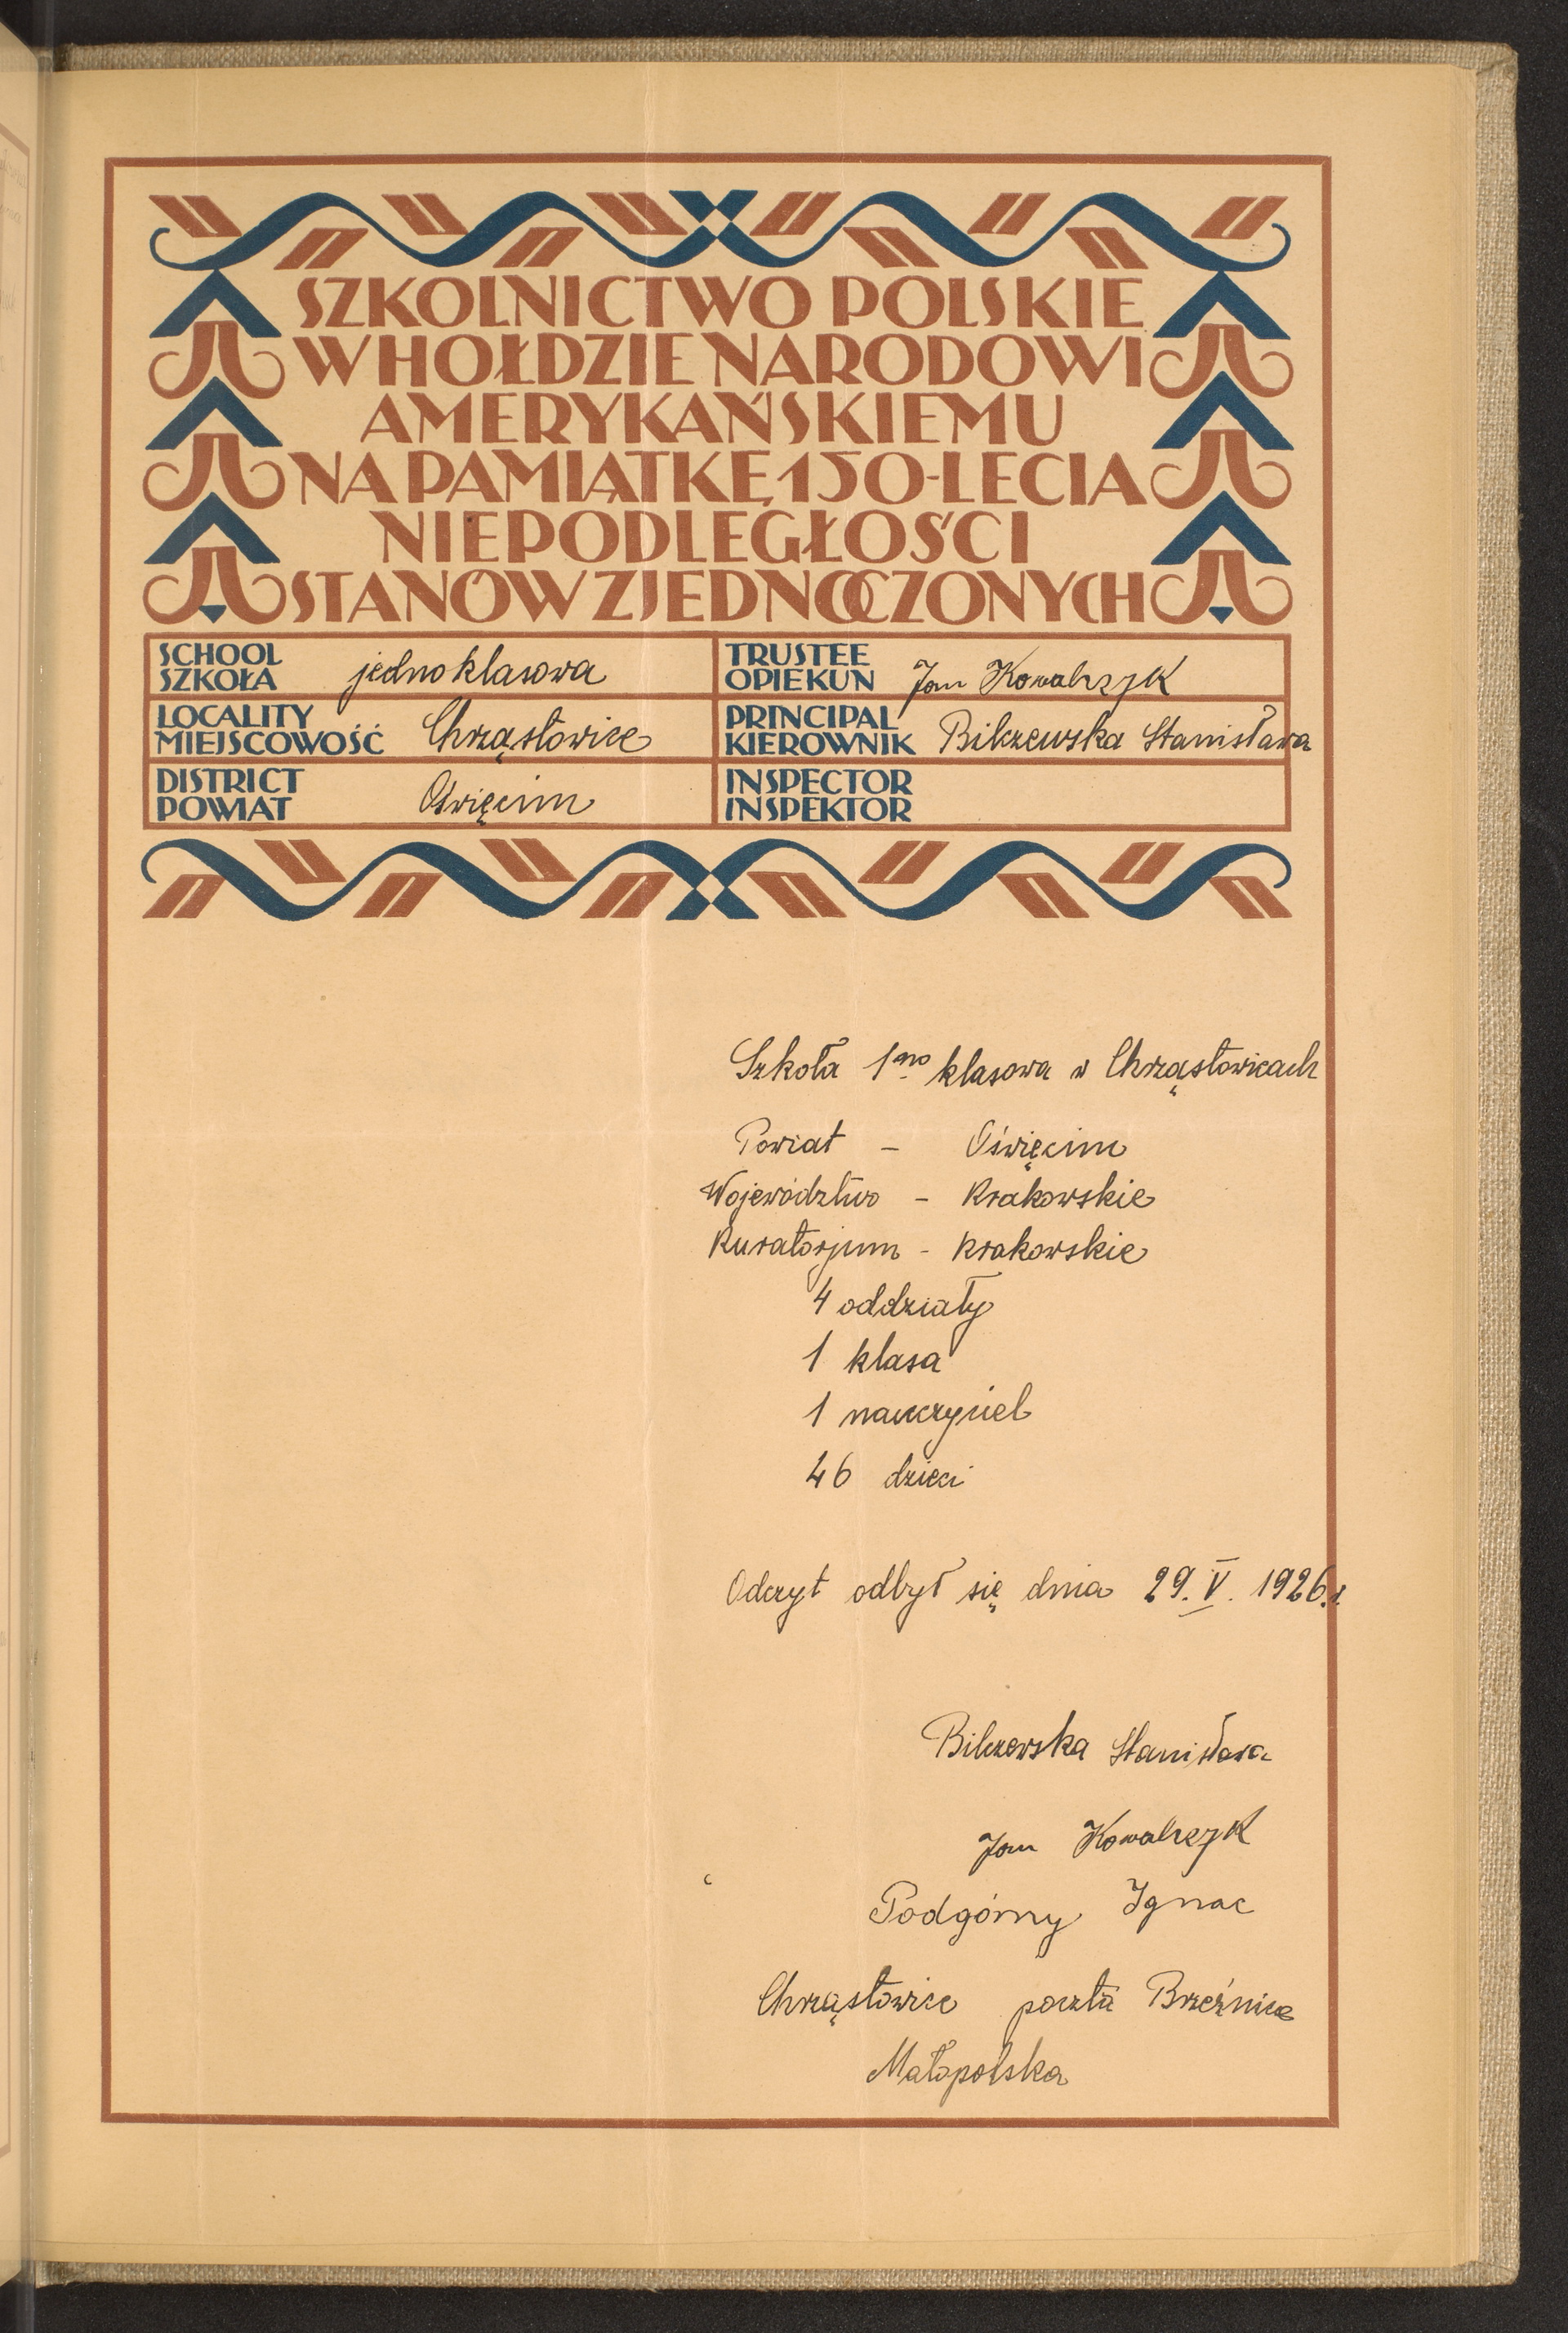 SZKOLNICTWO POLSKIE
W HOŁDZIE NARODOWI
AMERYKAŃSKIEMU
NA PAMIĄTKĘ 150-LECIA
NIEPODLEGŁOŚCI
STANÓW ZJEDNOCZONYCH
SCHOOL
SZKOŁA jednoklasowa
TRUSTEE
OPIEKUN Jan Kowalczyk
LOCALITY
MIEJSCOWOŚĆ Chrząstowice
PRINCIPAL
KIEROWNIK Bilczewska Stanisława
DISTRICT
POWIAT Oświęcim
INSPECTOR
INSPEKTOR
Szkoła 1no klasowa w Chrząstowicach
Powiat - Oświęcim
Województwo - Krakowskie
Kuratorjum - Krakowskie
4 oddziały
1 klasa
1 nauczyciel
46 dzieci
Odczyt odbył się dnia 29. V. 1926 r.
Bilczewska Stanisława
Jan Kowalczyk
Podgórny Ignac
Chrząstowice poczta Brzeźnica
Małopolska